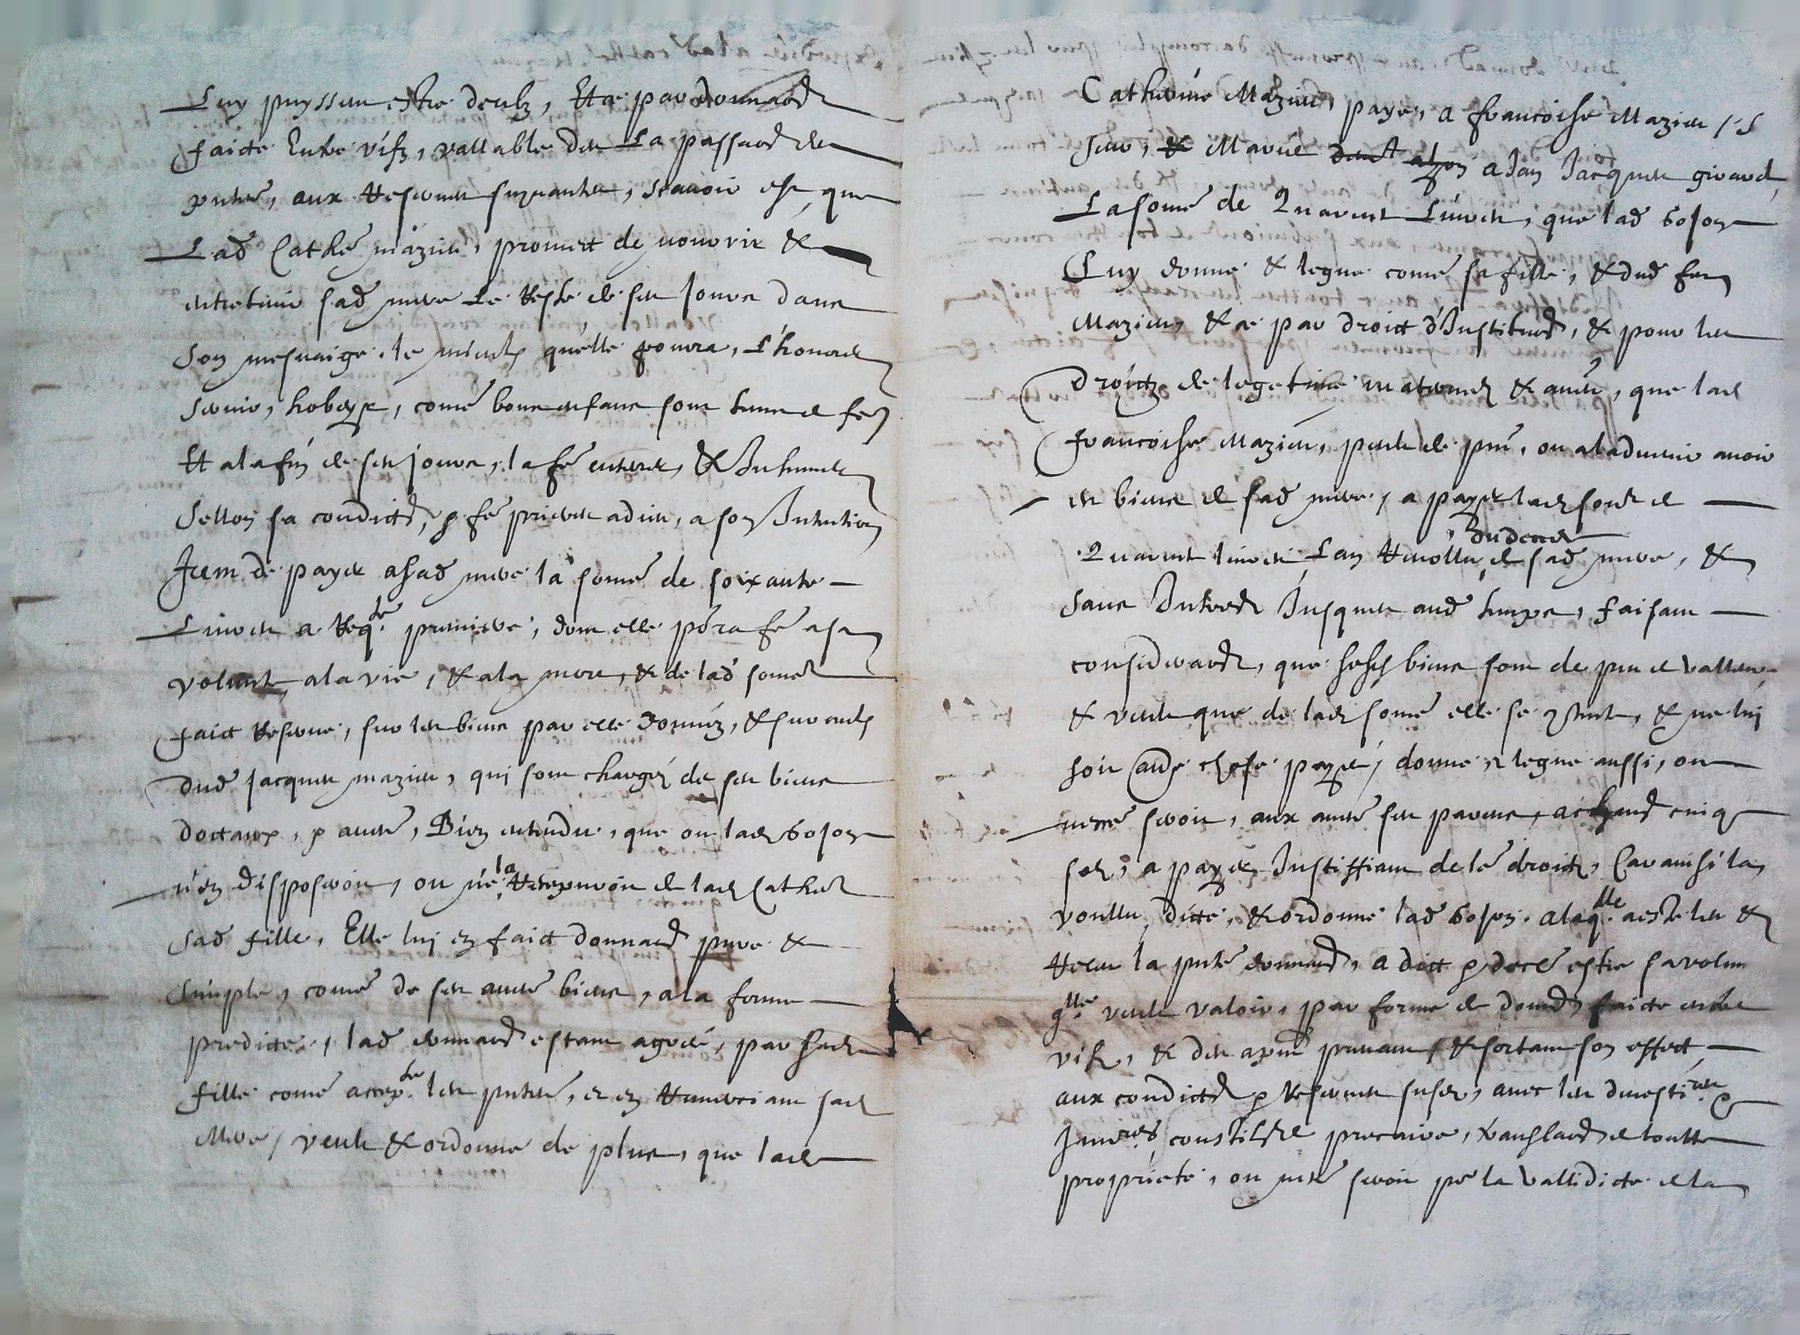 Luy puyssent estre deubz, Et ce par donnaon
faicte Entre vifz, vallable des La passaon des
pntes, aux Reserves suyvantes, scavoir est, que
Lad Cathe mazier, promect de nourrir &
entretenir sad mere Le Reste de ses Jours dans
son mesnaige, le mieulx qu'elle pourra, L'honorer
servir, hobeyr, come bons enfans sont tenus de fe
Et a la fin de ses jours, la fe enterer, & Inhumer
sellon sa condicton, & fe prieres a dieu, a son Intention
Item de payer a sad mere la some de soixante
Livres a Reqte premiere, dont elle pora fe a sa
volunte, a la vie, & a la mort, & de lad some
faict Reserve, sur les biens par elle donnez, & sur ceulx
dud Jacques mazier, qui sont charges de ses biens
doctaux, & autres, Bien entendu, que ou lad bojon
n'en disposeroit, ou ne la Retireroit de lad Cathe
sad fille, Elle lui en faict donnaon pure &
simple, come de ses autres biens, a la forme
predicte, lad donnaon estant agreé, par sad
fille come accepte les pntes, et en Remerciant sad
Mere, veult & ordonne de plus, que lad
Catherine Mazier, paye, a francoise Mazier, s
seur, & Marie a Jan Jacques girard,
La some de Quarant Livres, que lad bojon
Luy donne & legue come sa fille, & dud feu
Mazier, & ce par droict d'Institution, & pour les
droictz de legetime maternel & autres, que lad
francoise Mazier, peult de pnt, ou a l'advenir avoir
es biens de sad mere, a payer lad some de
Quarant livres Lan Revollu du deces de sad mere, &
sans Interestz Jusques aud temps, faisant
consideraon, que sesd biens sont de peu de valleur
& veult que de lad some elle se contente, & ne lui
soit autre chose payé, donne et legue aussi, ou
mestre seroit, aux autres ses parens, a chacung cinq
solz, a payer Justiffiant de le droictz, Car ainsi la
voullu, dicte, & ordonne lad bojon, a laqlle a este leu &
Releu la pnte donnaon, a dict & declé estre sa volunte
qlle veult valoir, par forme de donaon faicte entre
vifz, & des apnt prenant, & sortant son effect
aux condictons & Reserves susd, avec les devesti &
constitution precaire, translaon de toutte
propriete, ou mestre seroit pr la validicté de la